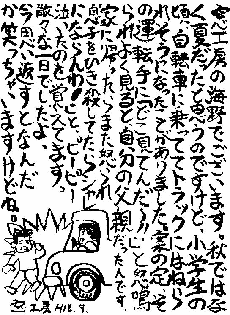 忍工房の海野でございます。秋ではな
く夏だったと思うのですけど、小学生の
頃、自転車に乗っててトラックにはねら
れそうになったことがありました。案の定、そ
の運転手に「どこ見てんだ!!」と怒鳴
られよく見ると自分の父親だったんです。
家に帰ったらまた怒られ
息子をひき殺してたらシャレ
にならん!」と、ビービー
泣いたのを覚えてます。
散々な一日でしたよ。
今思い返すとなんだ
か笑っちゃいますけどね。
忍工房 H18.9.